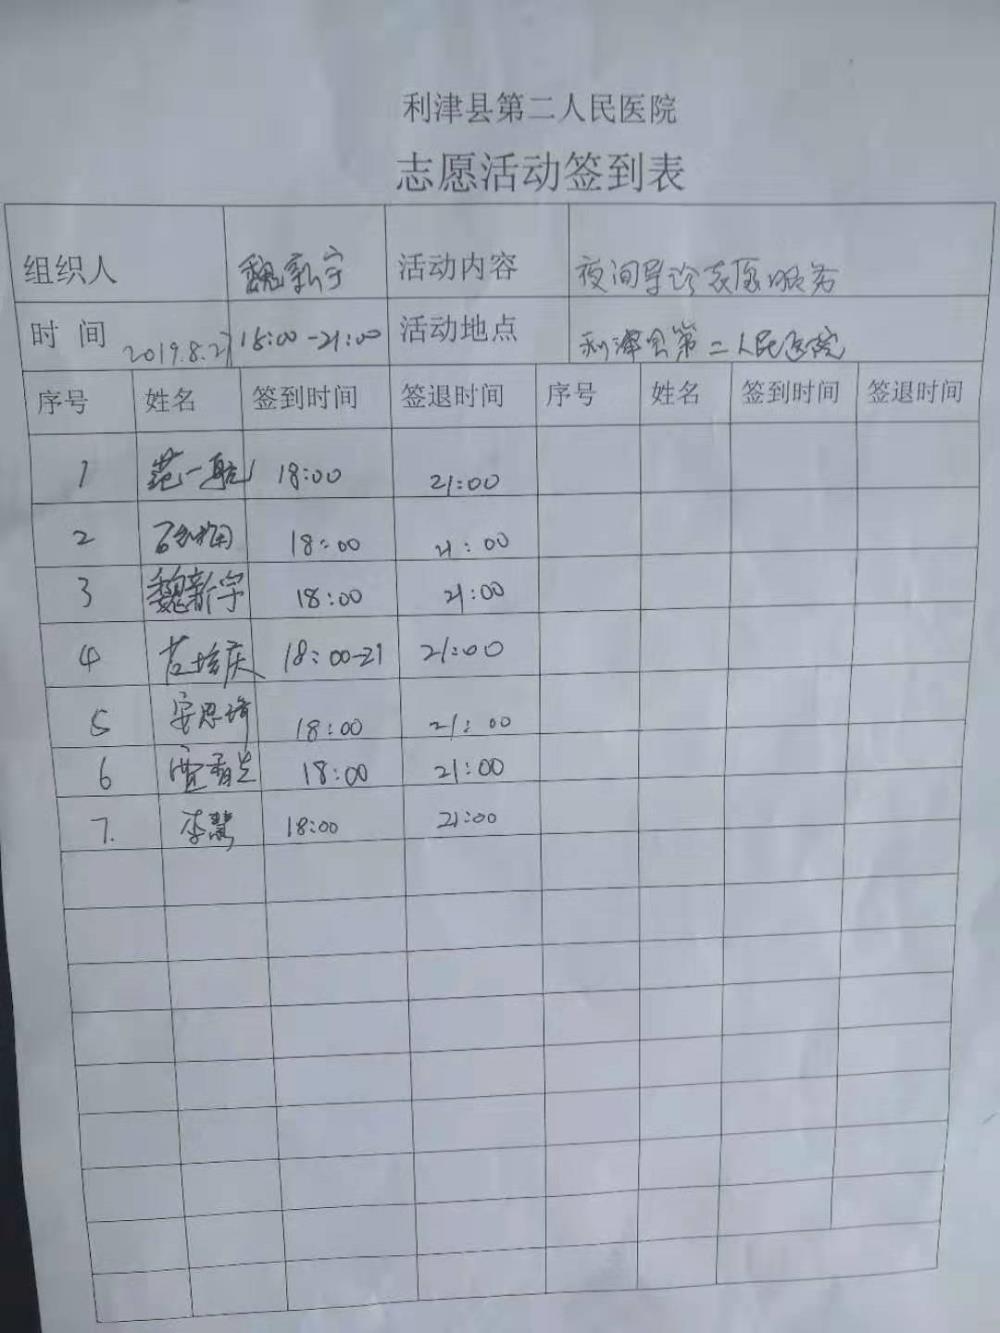 利津县第二人民医院
志愿活动签到表
组织人 魏新宇 活动内容 夜间导诊志愿服务
时 间 2019.8.27 18:00-21:00 活动地点 利津县第二人民医院
序号 姓名 签到时间 签退时间 序号 姓名 签到时间 签退时间
1 范一航 18:00 21:00
2 18:00 21:00
3 魏新宇 18:00 21:00
4 18:00-21 21:00
5 安思琦 18:00 21:00
6 18:00 21:00
7. 李慧 18:00 21:00